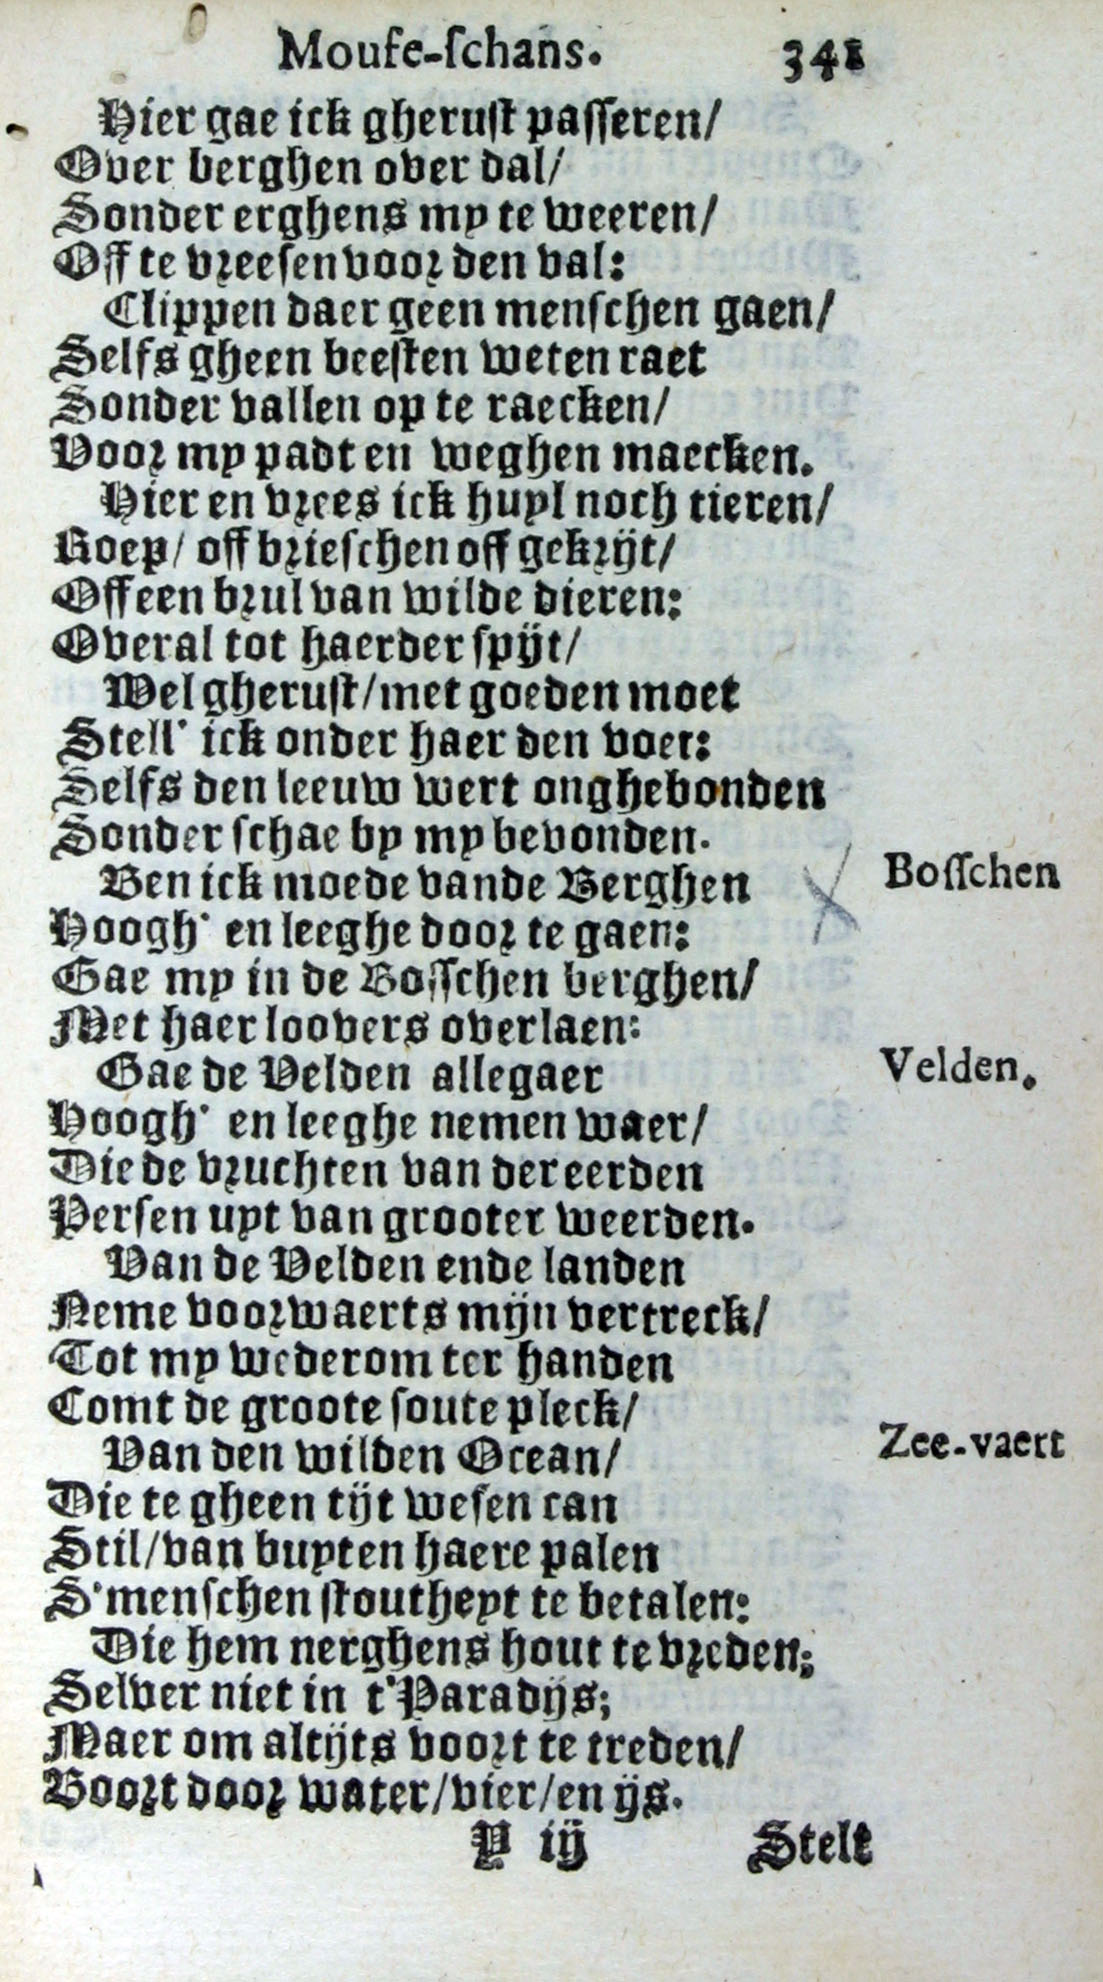 Mouse-schans. 341
Hier gae ick gherust passeren/
Over berghen over dal/
Sonder erghens my te weeren/
Off te vreesen voor den val:
Clippen daer geen menschen gaen/
Selfs gheen beesten weten raet
Sonder vallen op te raecken/
Voor my padt en weghen maecken.
Hier en vrees ick huyl noch tieren/
Roep/ off brieschen off gekrijt/
Off een brul van wilde dieren:
Overal tot haerder spijt/
Wel gherust/met goeden moet
Stell' ick onder haer den voet:
Selfs den leeuw wert onghebonden
Sonder schae by my bevonden.
Ben ick moede vande Berghen Bosschen
Hoogh' en leeghe door te gaen:
Gae my in de Bosschen berghen/
Met haer loovers overlaen:
Gae de Velden allegaer Velden.
Hoogh' en leeghe nemen waer/
Die de vruchten van der eerden
Persen uyt van grooter weerden.
Van de Velden ende landen
Neme voorwaerts mijn vertreck/
Tot my wederom ter handen
Comt de groote soute pleck/
Van den wilden Ocean/ Zee-vaert
Die te gheen tijt wesen can
Stil/van buyten haere palen
S'menschen stoutheyt te betalen:
Die hem nerghens hout te vreden;
Selver niet in t'Paradijs;
Maer om altijts voort te treden/
Boort door water/vier/en ijs.
Y ij Stelt